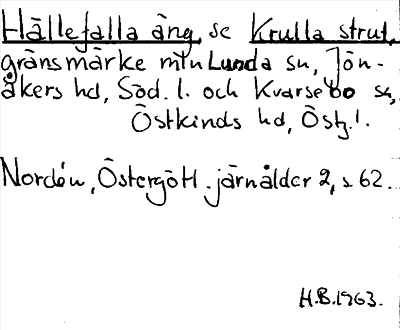 Hällefalla äng se Krulla strut,
gränsmärke mtn Lunda sn, Jön-
åkers hd, Söd. l. och Kvarsebo sn,
Östkinds hd, Östg. l.
Nordén, Östergötl. järnålder 2, s 62.
H.B. 1963.